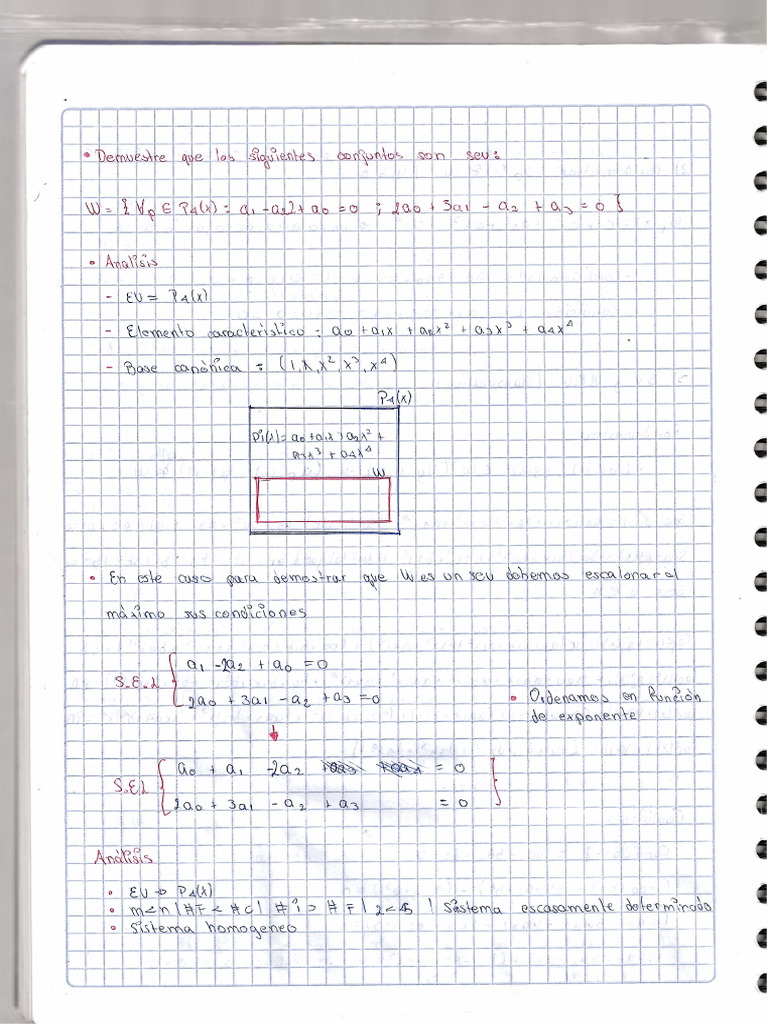 • Demuestre que los siguientes conjuntos son seu:
W = { ∀p ∈ P4(x) : a1 - a2 + a0 = 0 ; 2a0 + 3a1 - a2 + a3 = 0 }
• Analisis
- EV = P4(x)
- Elemento caracteristico : a0 + a1x + a2x² + a3x³ + a4x⁴
- Base canónica = (1, x, x², x³, x⁴)
P4(x)
a0 + a1x + a2x² +
a3x³ + a4x⁴
W
• En este caso para demostrar que W es un seu debemos escalonar al
máximo sus condiciones
S.E.L { a1 - 2a2 + a0 = 0
2a0 + 3a1 - a2 + a3 = 0
• Ordenamos en función
de exponente
S.E.L { a0 + a1 - 2a2 = 0
2a0 + 3a1 - a2 + a3 = 0 }
Análisis
• EV ⇒ P4(x)
• m<n | #F < #C | #i > #F | 2<5 | Sistema escasamente determinado
• Sistema homogeneo